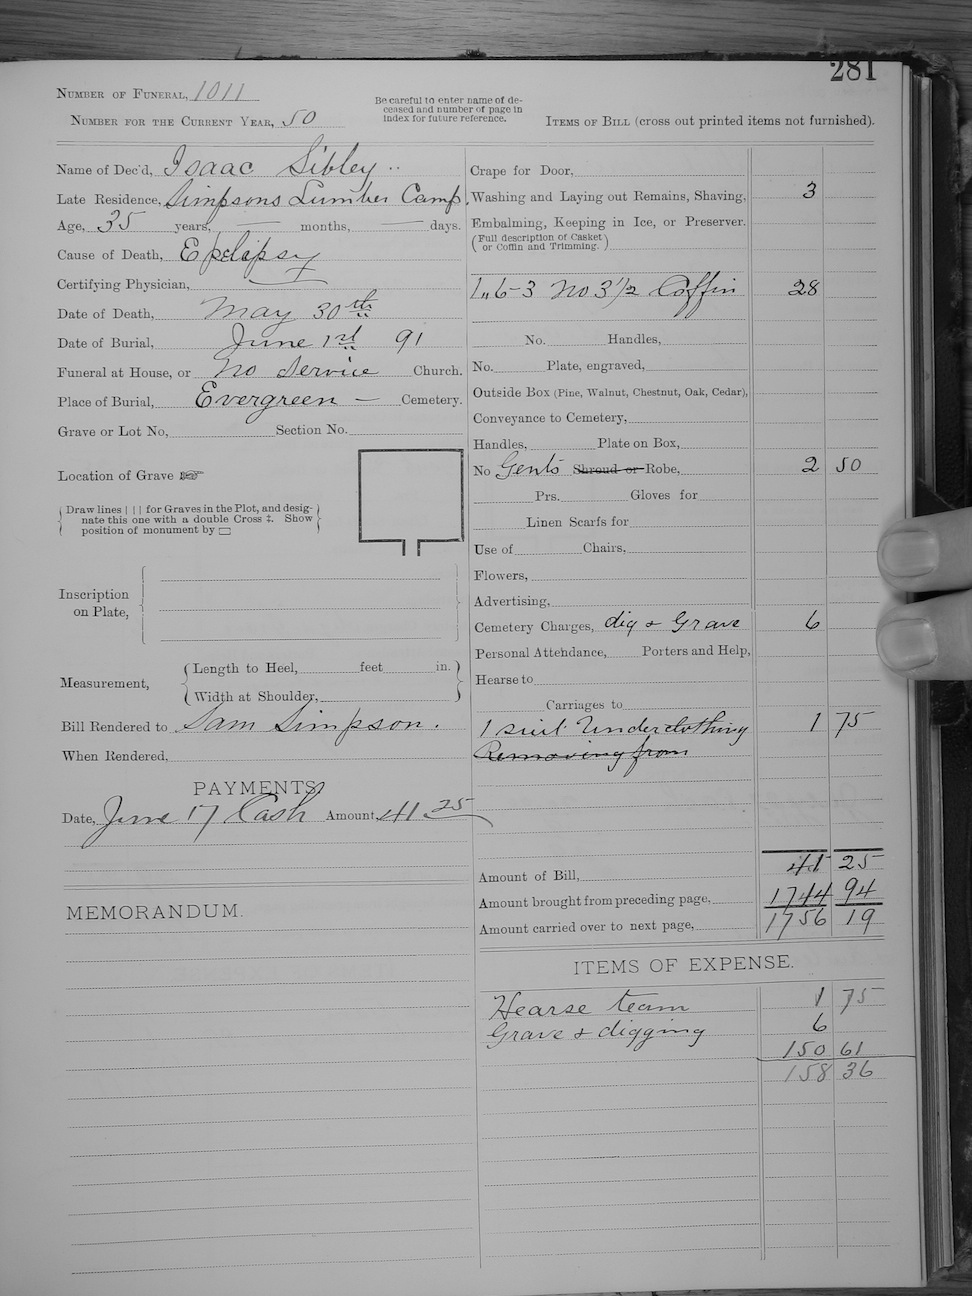 281
Number of Funeral, 1011
Number for the Current Year, 50
Be careful to enter name of de-
ceased and number of page in
index for future reference.
Items of Bill (cross out printed items not furnished).
Name of Dec'd, Isaac Sibley
Late Residence, Simpsons Lumber Camp,
Age, 35 years, — months, — days.
Cause of Death, Epelipsy
Certifying Physician,
Date of Death, May 30th
Date of Burial, June 1st 91
Funeral at House, or No Service Church.
Place of Burial, Evergreen — Cemetery.
Grave or Lot No, Section No.
Location of Grave ☞
Draw lines | | | for Graves in the Plot, and desig-
nate this one with a double Cross ‡. Show
position of monument by ▭
Inscription
on Plate,
Measurement,
Length to Heel, feet in.
Width at Shoulder,
Bill Rendered to Sam Simpson.
When Rendered,
PAYMENTS
Date, June 17 Cash Amount, 41 25
MEMORANDUM.
Crape for Door,
Washing and Laying out Remains, Shaving, 3
Embalming, Keeping in Ice, or Preserver.
(Full description of Casket
or Coffin and Trimming.)
1,, 6-3 No 3 1/2 Coffin 28
No. Handles,
No. Plate, engraved,
Outside Box (Pine, Walnut, Chestnut, Oak, Cedar),
Conveyance to Cemetery,
Handles, Plate on Box,
No Gents Shroud or Robe, 2 50
Prs. Gloves for
Linen Scarfs for
Use of Chairs,
Flowers,
Advertising,
Cemetery Charges, dig & Grave 6
Personal Attendance, Porters and Help,
Hearse to
Carriages to
1 suit Underclothing 1 75
Removing from
41 25
Amount of Bill,
Amount brought from preceding page, 1744 94
Amount carried over to next page, 1756 19
ITEMS OF EXPENSE.
Hearse team 1 75
Grave & digging 6
150 61
158 36